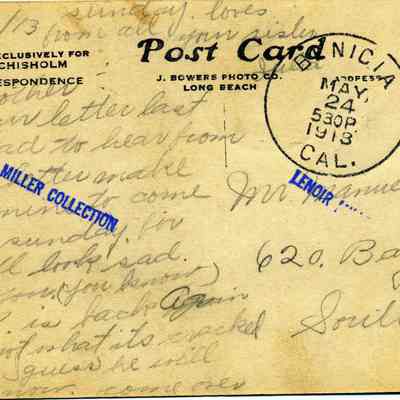 /13
sunday. loves
from all your sister
EXCLUSIVELY FOR
CHISHOLM
RESPONDENCE
Post Card
J. BOWERS PHOTO CO.
LONG BEACH
ADDRESS
BENICIA
MAY,
24
530P.
1913
CAL.
other -
letter last
ad to hear from
letter make
to come
sunday. for
ll look sad.
you (you know)
is back again
not what its cracked
guess he will
now. come over
MILLER COLLECTION
LENOIR
Mr. Manue
620. Ba
South